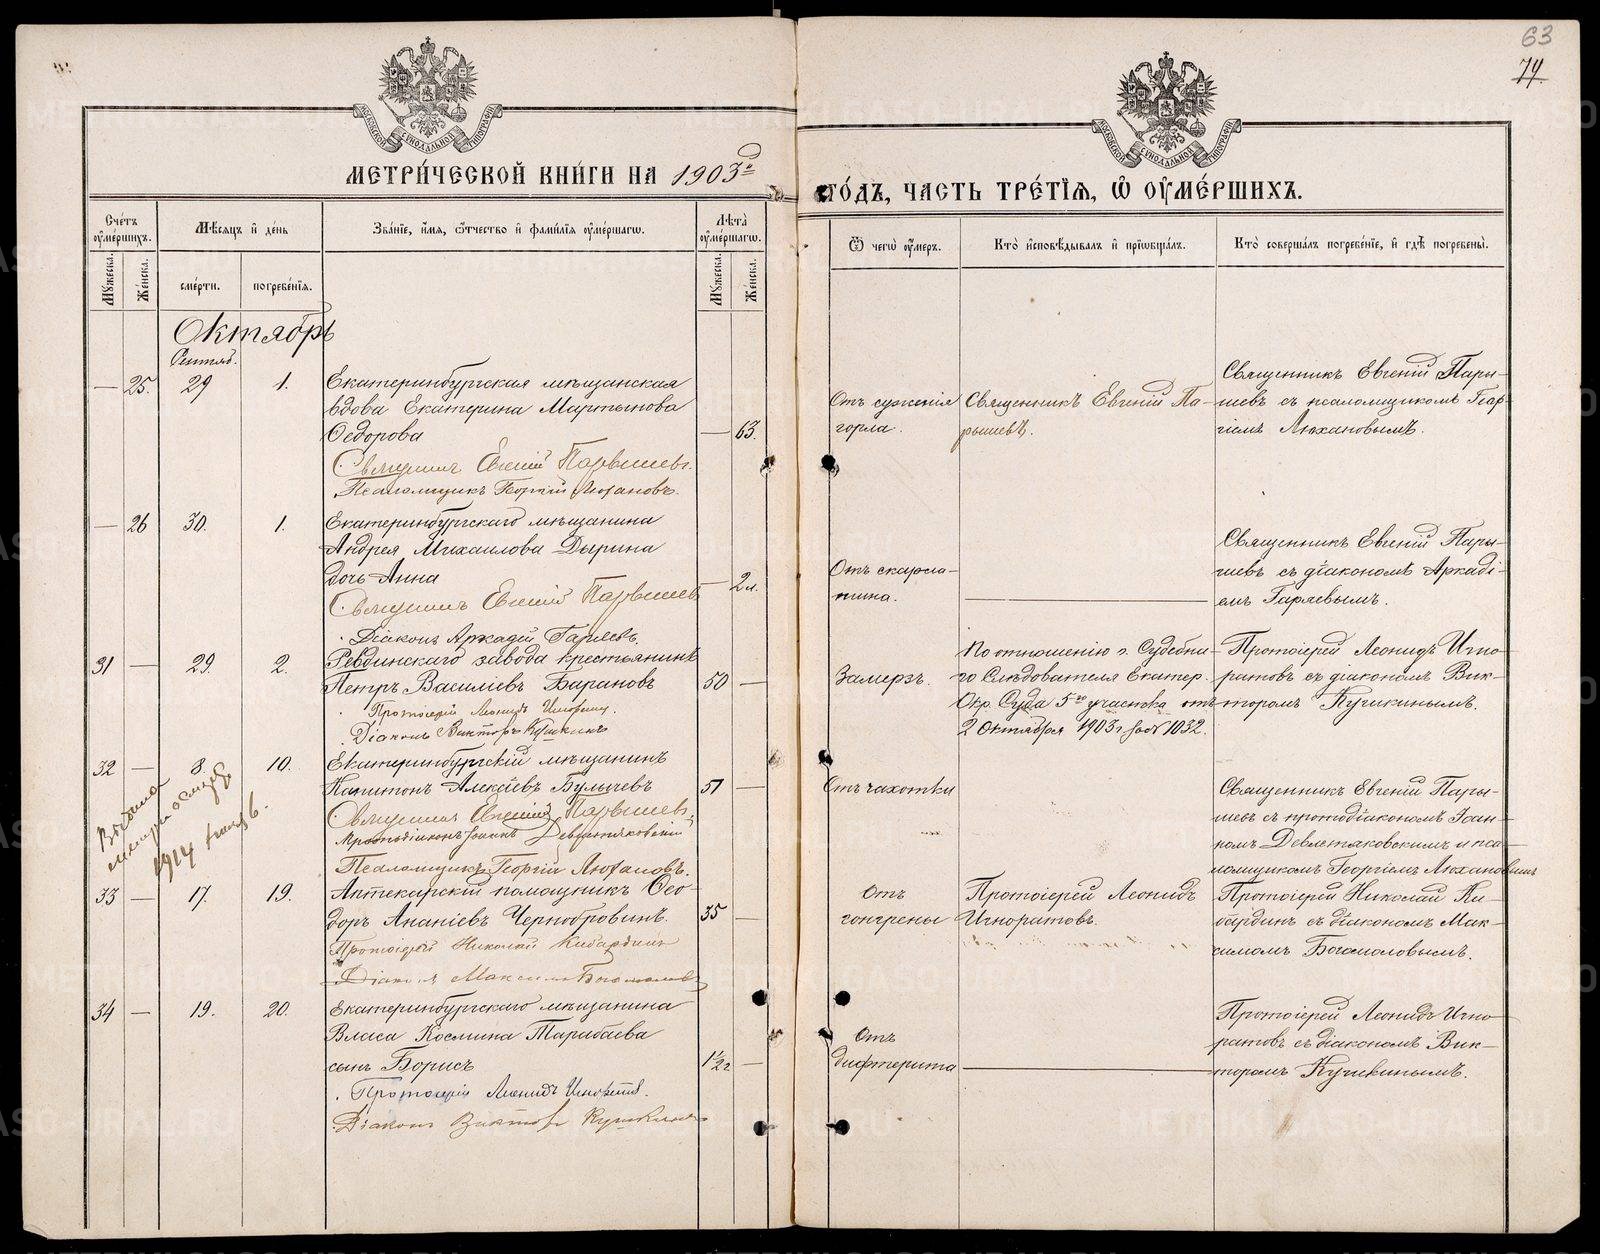 63
74.
МОСКОВСКОЙ СѴНОДАЛЬНОЙ ТИПОГРАФІИ
МОСКОВСКОЙ СѴНОДАЛЬНОЙ ТИПОГРАФІИ
МЕТРИ́ЧЕСКОЙ КНИ́ГИ НА 1903й
ГО́ДЪ, ЧАСТЬ ТРЕ́ТІѦ, Ѿ ОУ҆МЕ́РШИХЪ.
Сче́тъ оу҆ме́ршихъ.
Мѣсяцъ и҆ де́нь
Зва́нїе, и҆́мя, ѻ҆́тчество и҆ фами́лїя оу҆ме́ршагѡ.
Лѣта̀ оу҆ме́ршагѡ.
Ѿ чегѡ̀ оу҆́меръ.
Кто̀ и҆сповѣ́дывалъ и҆ прїѡбща́лъ.
Кто̀ соверша́лъ погребе́нїе, и҆ гдѣ̀ погребены̀.
Мꙋ́жеска.
Же́нска.
сме́рти.
погребе́нїя.
Мꙋ́жеска.
Же́нска.
Октябрь
Сентяб.
— 25. 29 1. Екатеринбургская мѣщанская
вдова Екатерина Мартынова
Ѳедорова — 63.
Священникъ Евгеній Парышевъ.
Псаломщикъ Георгій Люхановъ.
Отъ суженія
горла.
Священникъ Евгеній Па-
рышевъ.
Священникъ Евгеній Пары-
шевъ съ псаломщикомъ Геор-
гіемъ Люхановымъ.
— 26 30. 1. Екатеринбургскаго мѣщанина
Андрея Михаилова Дырина
дочь Анна — 2 л.
Священникъ Евгеній Парышевъ
Діаконъ Аркадій Гаряевъ.
Отъ скарла-
тина.
Священникъ Евгеній Пары-
шевъ съ діакономъ Аркаді-
емъ Гаряевымъ.
31 — 29 2. Ревдинскаго завода крестьянинъ
Петръ Василіевъ Барановъ 50 —
Протоіерей Леонидъ Игноратовъ.
Діаконъ Викторъ Кушкинъ
Замерзъ.
По отношенію г. Судебна-
го Слѣдователя Екатер.
Окр. Суда 5го участка отъ
2 Октября 1903 г за № 1032.
Протоіерей Леонидъ Игно-
ратовъ съ діакономъ Вик-
торомъ
32 — 8. 10. Екатеринбургскій мѣщанинъ
Капитонъ Алексѣевъ Булычевъ 51 —
Священникъ Евгеній Парышевъ,
Протодіаконъ Іоаннъ Девлетяковскій
Псаломщикъ Георгій Люхановъ.
1914
Отъ чахотки
Священникъ Евгеній Пары-
шевъ съ протодіакономъ Іоан-
номъ Девлетяковскимъ и пса-
ломщикомъ Георгіемъ Люхановымъ
33 — 17. 19. Аптекарскій помощникъ Ѳео-
доръ Ананіевъ Чернобровинъ. 35 —
Протоіерей Николай Кибардинъ
Діаконъ Максимъ Богомоловъ
Отъ
гонгрены
Протоіерей Леонидъ
Игноратовъ.
Протоіерей Николай Ки-
бардинъ съ діакономъ Мак-
симомъ Богомоловымъ.
34 — 19. 20. Екатеринбургскаго мѣщанина
Власа Космина Тарабаева
сынъ Борисъ 1½ г —
Протоіерей Леонидъ Игноратовъ.
Діаконъ Викторъ Кушкинъ
Отъ
дифтерита
Протоіерей Леонидъ Игно-
ратовъ съ діакономъ Вик-
торомъ
METRIKI.GASO-URAL.RU